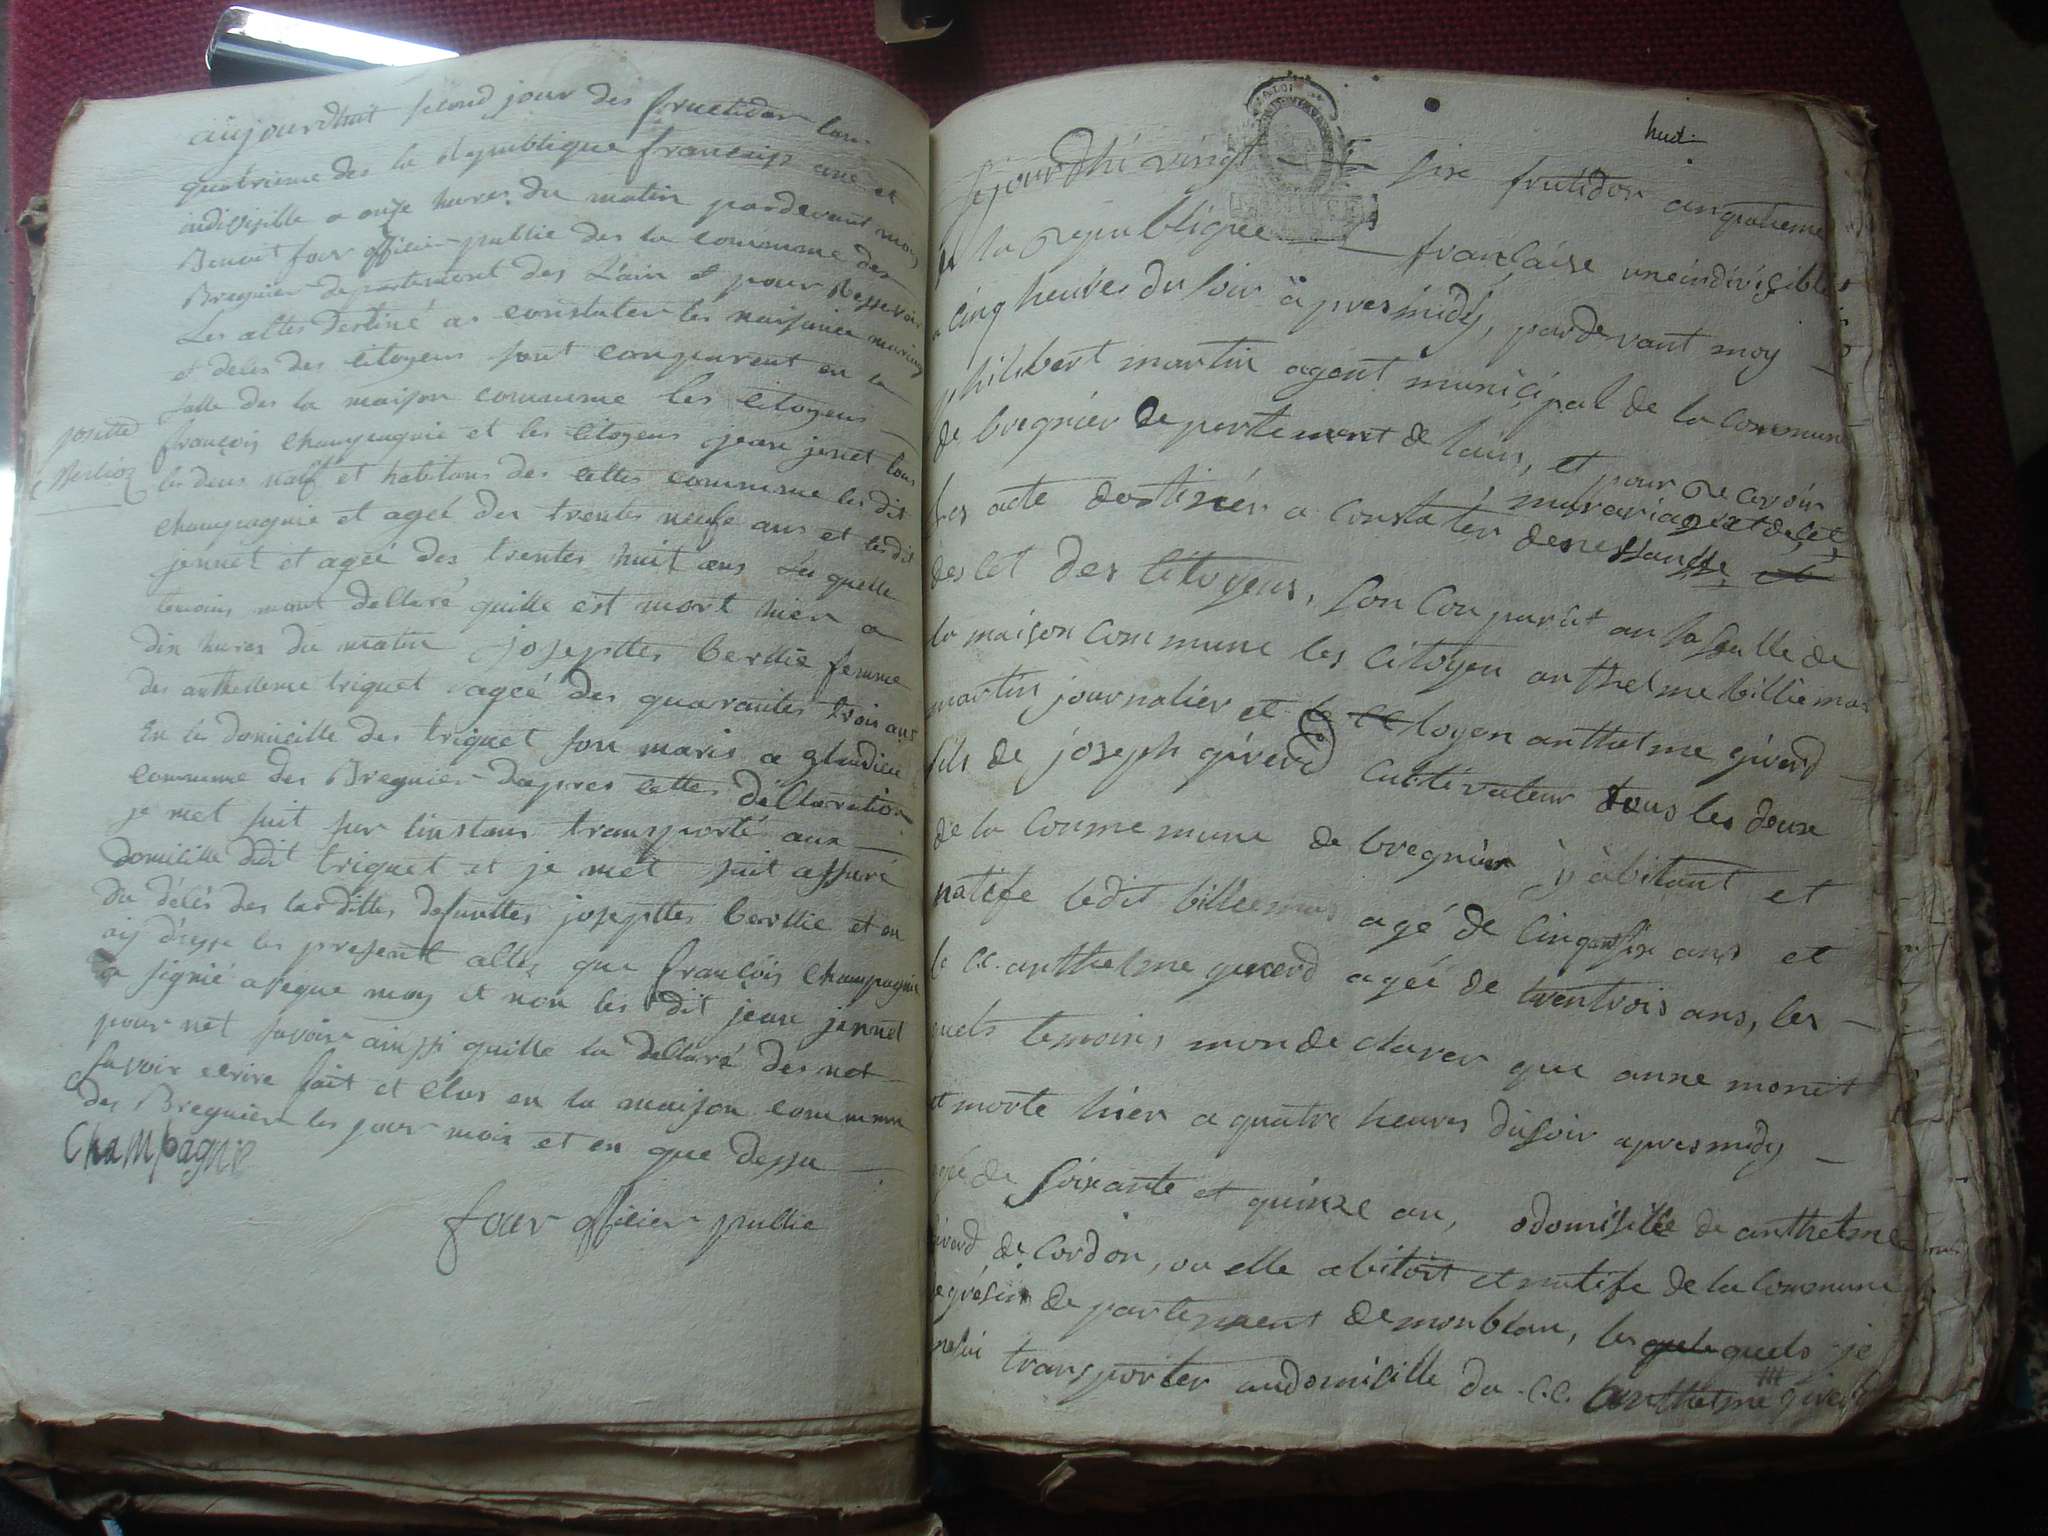 aujourdhuit second jour des fructidor lan
quatrieme des la Republique francaise une et
indivisible a onze hures du matin pardevant moy
Benoit four officier public des la commune des
Bregnier departement des Lain et pour Resevoir
Les altes destiné a constater les naisance mariag
et deces des citoyens sont comparent en la
salle des la maison commune les citoyens
josette
Berlioz
françois champagnie et les citoyens jean jennet tous
les deus natif et habitans des cettes commune les dit
champagnie et ageé des trentes neufe ans et les dit
jennet et ageé des trentes huit ans Les quelle
temoins mont dellaré quille est mort hier a
dix hures du matin josepttes berllie femme
des anthelleme triquet ageé des quarantes trois ans
En le domicille des triquet son maris a glandieu
commune des Bregnier dapres cettes dellaration
je met suit sur linstans transporté aux
domicille dudit triquet et je met suit assuré
du délés des lasdittes defunttes josepttes berllie et en
aij dresse les present altes que françois champagnie
a signié aveque moy et non les dit jean jennet
pour net savoir ainssi quille la dellaré des net
savoir ecrire fait et clos en la maison commune
des Bregnier les jour mois et en que dessu
Champagnie
four officier public
huit
Sejourdhi vingt six frutidor anquatieme
de la republique française uneindivisible
a cinq heures du soir apres midy, pardevant moy
philibert martin agent municipal de la commun
de bregnier departement de lain, et pour recevoir
les acte destinés a constater denessansse et
marariage et decet
descet des citoyens, son conparut an la salle de
la maison commune les citoyen anthelme billiemas
martin journalier et le citoyen anthelme giverd
fils de joseph giverd cultivateur tous les deux
de la commemune de bregnier y abitant et
natife ledit billiemas agé de cinquantsix ans et
le c.c. anthelme giverd ageé de trentrois ans, les
quels temoins mondeclarer que anne monet
et morte hier a quatre heures dusoir apresmidy
agé de soixante et quinze an, odomisille de anthelme
giverd de cordon, ou elle abitoit et natife de la commune
de grésin departement demonblan, les quels quels je
mesui transporter audomisille du c.c. anthelme giverd